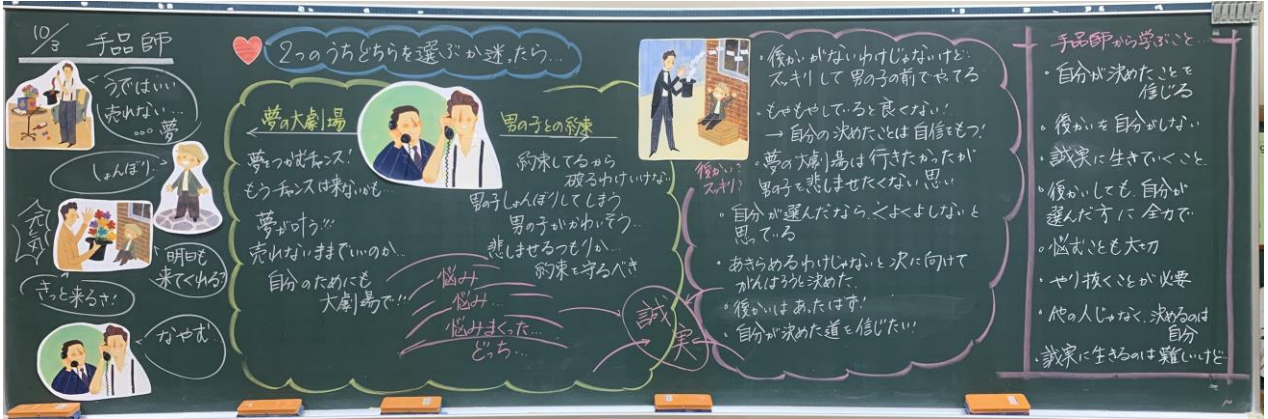 10/3 手品師
うではいい
売れない…
…夢
しょんぼり…
元気
明日も
来てくれる?
きっと来るさ!
なやむ…
2つのうちどちらを選ぶか迷ったら…
夢の大劇場
夢をつかむチャンス!
もうチャンスは来ないかも…
夢が叶う!!
売れないままでいいのか…
自分のためにも
大劇場で!!
男の子との約束
約束してるから
破るわけいけない
男の子しょんぼりしてしまう
男の子がかわいそう…
悲しませるつもりか…
約束を守るべき
悩み…
悩み…
悩みまくった…
どっち…
誠
実
後かい?
スッキリ?
・後かいがないわけじゃないけど…
スッキリして男の子の前でやってる
・もやもやしていると良くない!
→自分の決めたことは自信をもつ!
・夢の大劇場は行きたかったが
男の子を悲しませたくない思い
・自分が選んだなら、くよくよしないと
思っている
・あきらめるわけじゃないと次に向けて
がんばろうと決めた。
・後かいはあったはず!
・自分が決めた道を信じたい!
手品師から学ぶこと…
・自分が決めたことを
信じる
・後かいを自分がしない
・誠実に生きていくこと
・後かいしても、自分が
選んだ方に全力で
・悩むことも大切
・やり抜くことが必要
・他の人じゃなく、決めるのは
自分
・誠実に生きるのは難しいけど…